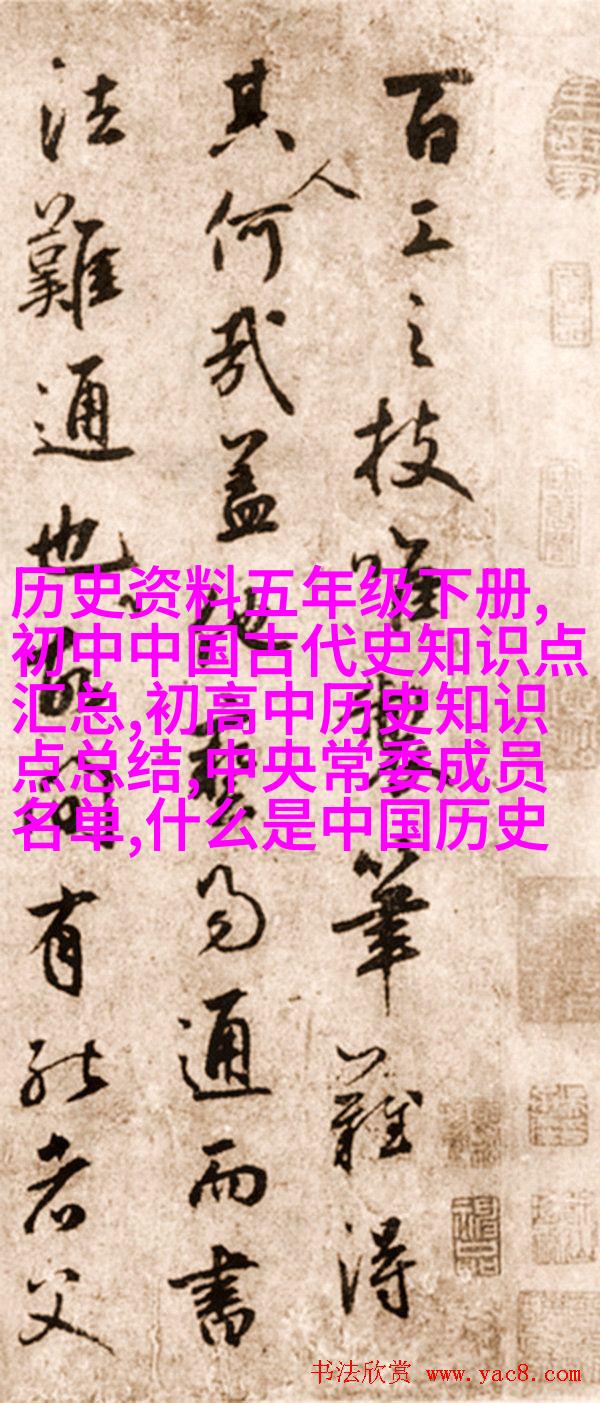 百工之技唯筆難得
其人何哉蓋他藝易通而書
法難通也有能者父
历史资料五年级下册,
初中中国古代史知识点
汇总,初高中历史知识
点总结,中央常委成员
名单,什么是中国历史
书法欣赏 www.yac8.com